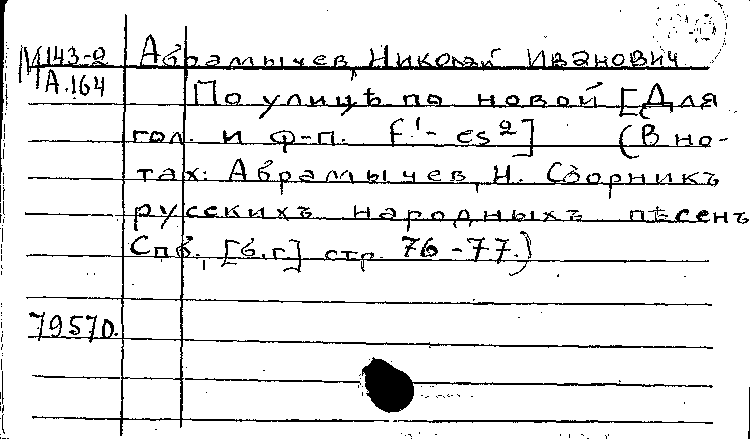 М 143-2 Абрамычев, Николай Иванович
А.164 По улицѣ по новой [Для
гол. и ф-п. f.¹- es²] (В но-
тах: Абрамычев, Н. Сборникъ
русскихъ народныхъ пѣсенъ
Спб., [б.г] стр. 76-77.)
79570.